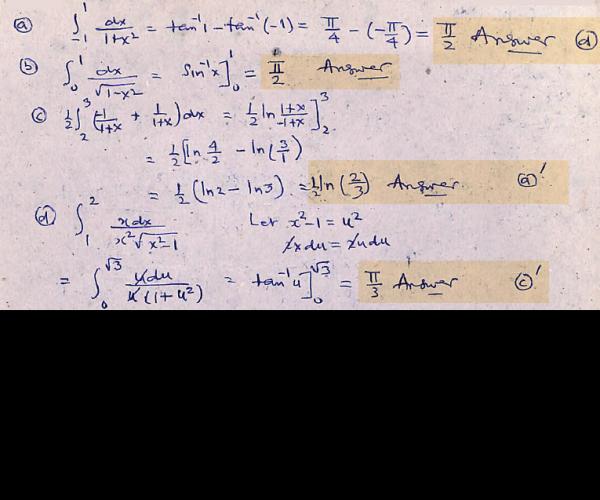 (a) ∫₋₁¹ dx/(1+x²) = tan⁻¹1 - tan⁻¹(-1) = π/4 - (-π/4) = π/2 Answer (d)
(b) ∫₀¹ dx/√(1-x²) = Sin⁻¹x]₀¹ = π/2 Answer
(c) ½∫₂³ (-1/(1+x) + 1/(1+x))dx = ½ ln (1+x)/(-1+x)]₂³
= ½[ln 4/2 - ln(3/1)
= ½(ln2 - ln3) = ½ln(2/3) Answer (a)'
(d) ∫₁² xdx/(x²√(x²-1)) Let x²-1 = u²
2xdu = 2udu
= ∫₀^√3 udu/(u(1+u²)) = tan⁻¹u]₀^√3 = π/3 Answer (c)'